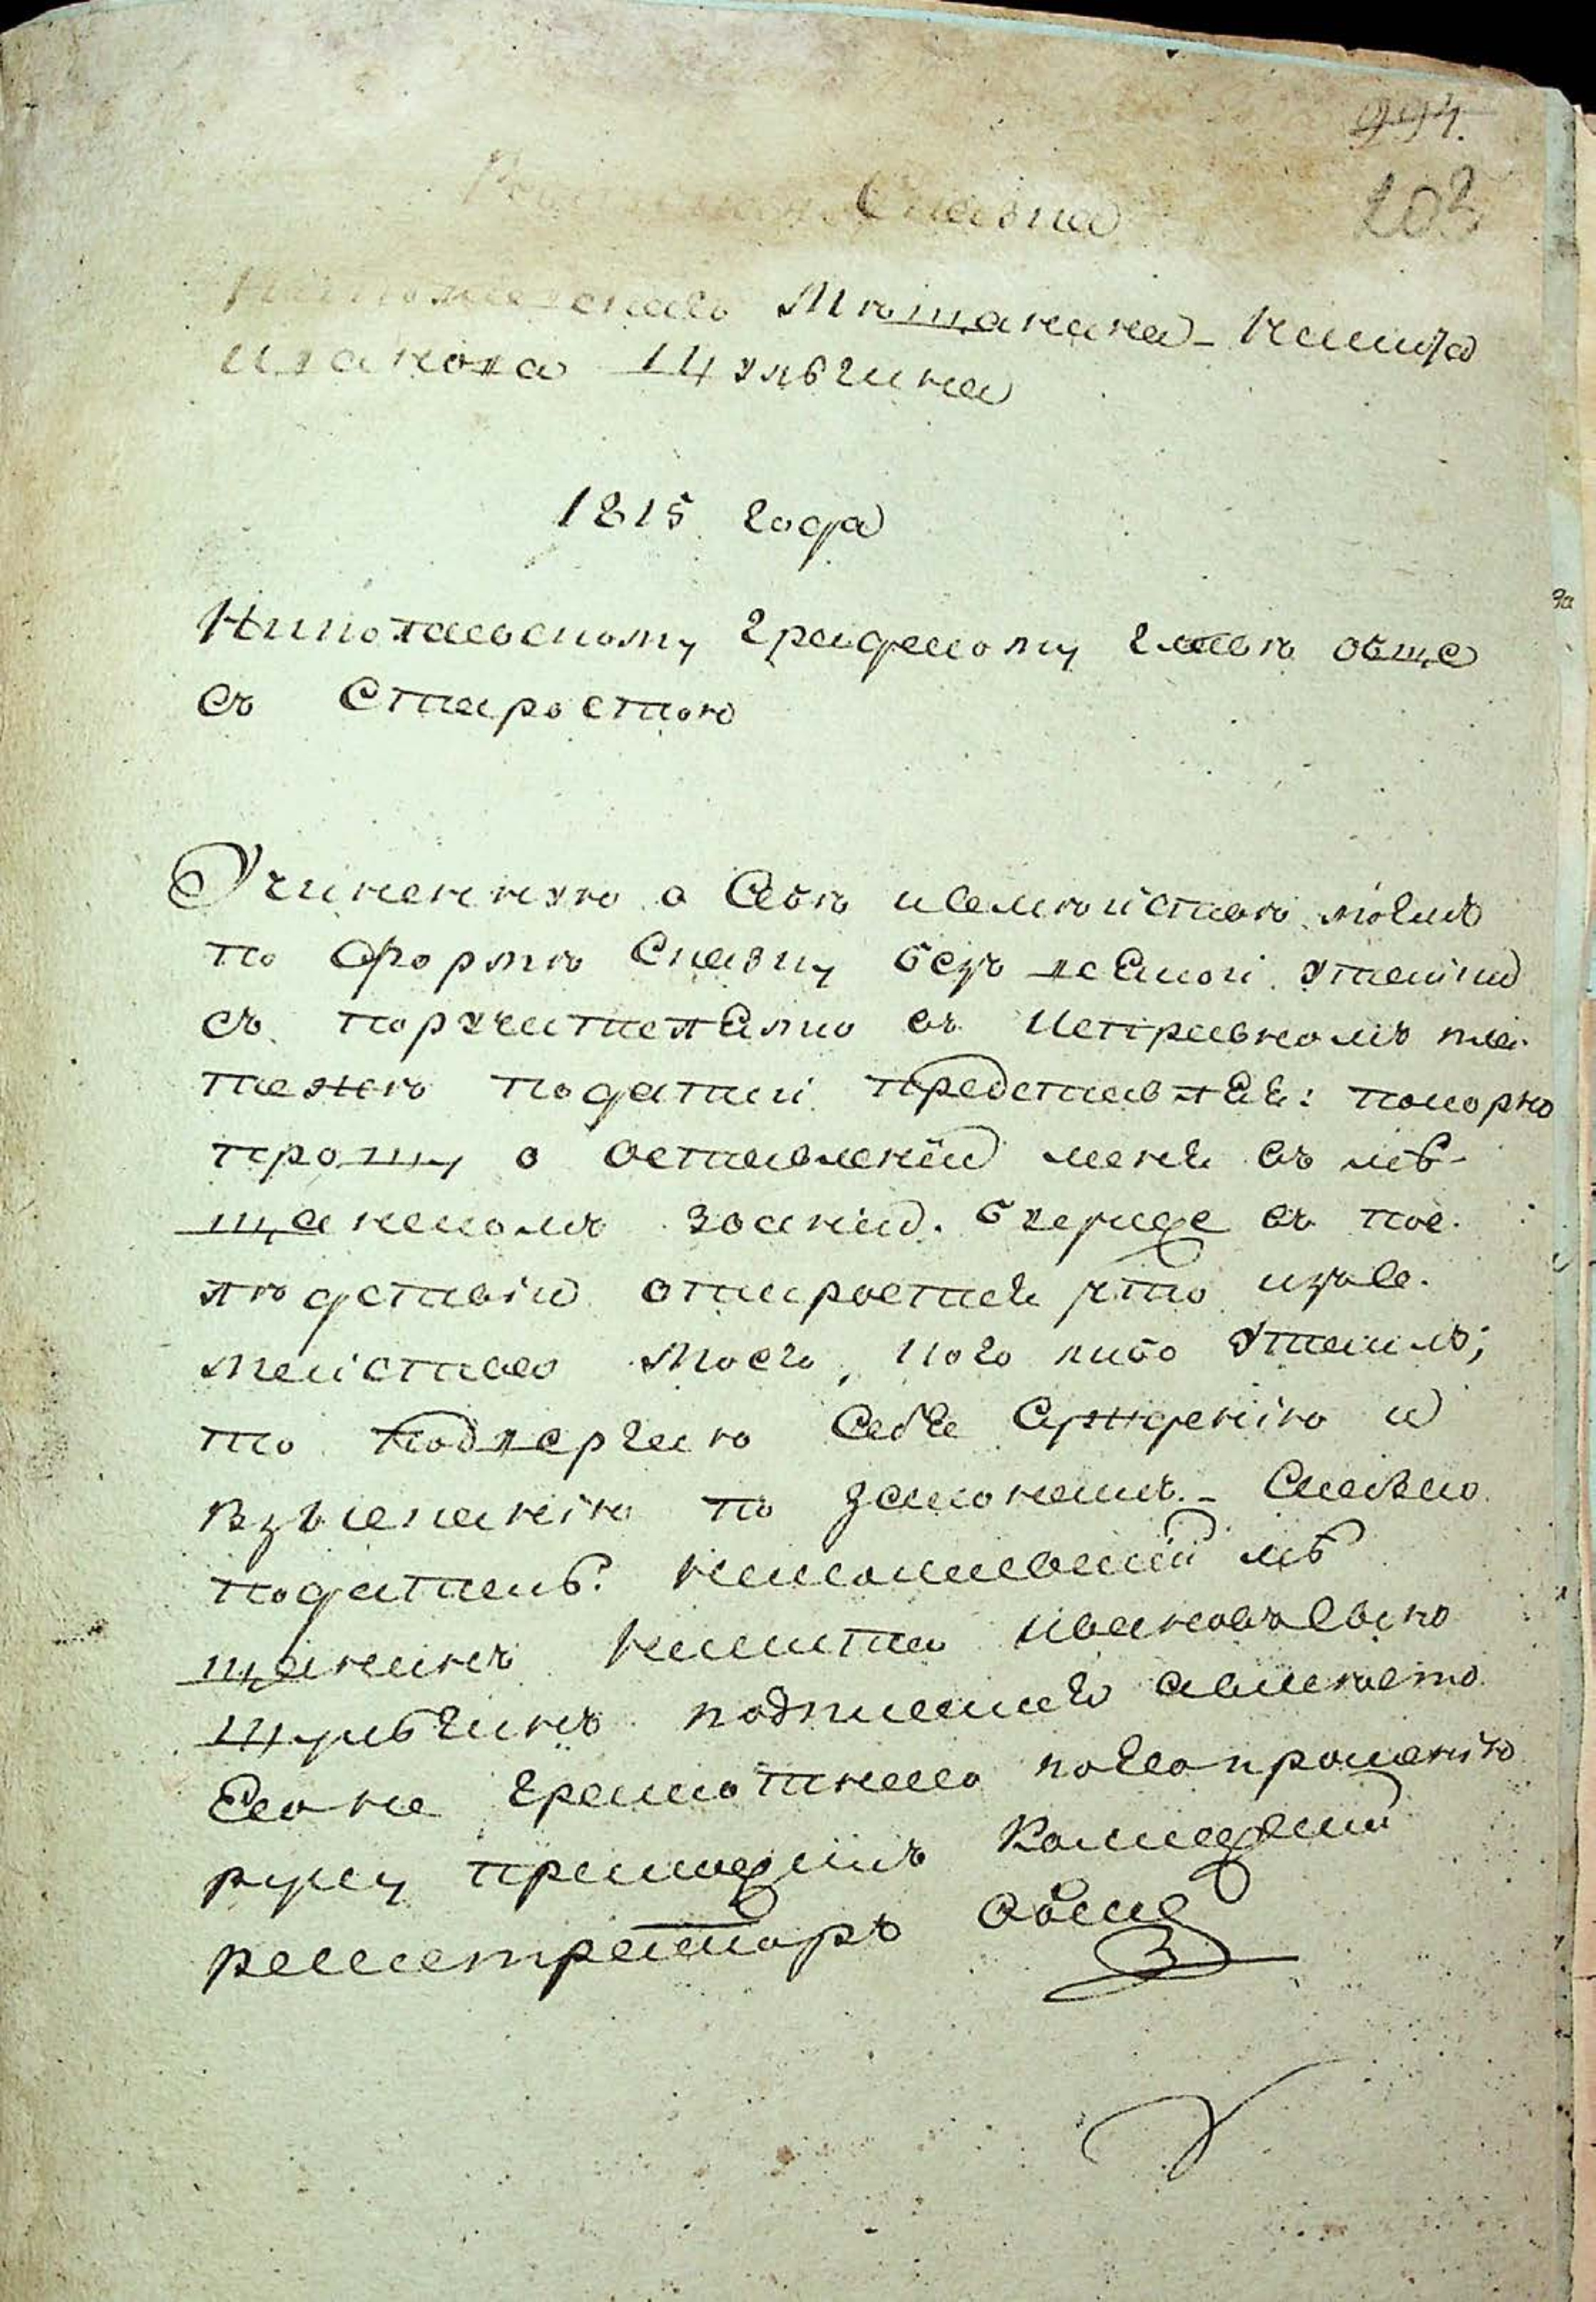 994.
203
Ревизская Сказка
Николаевскаго Мѣщанина Никита
иванова Шулгина
1815 года
Николаевскому градскому главѣ обще
съ старостою
Учиненную о Себѣ исемѣйствѣ моемъ
по формѣ Скаску безъ всякой утайки
съ поручителями въ исправномъ пла-
тежѣ податий представляя: покорно
прошу о оставлении меня въ мѣ-
щанскомъ звании. буде же въ пос-
лѣдствіи откроется что изъсе-
мейства моего, кого либо утаилъ;
то подвергаю себя сужденію и
взысканію по законамъ. Скаску
податель: николаевский мѣ
щанинъ никита ивановъ
шулгинъ
Его не грамотнаго поего прошению
руку приложилъ Колежский
регистраторъ